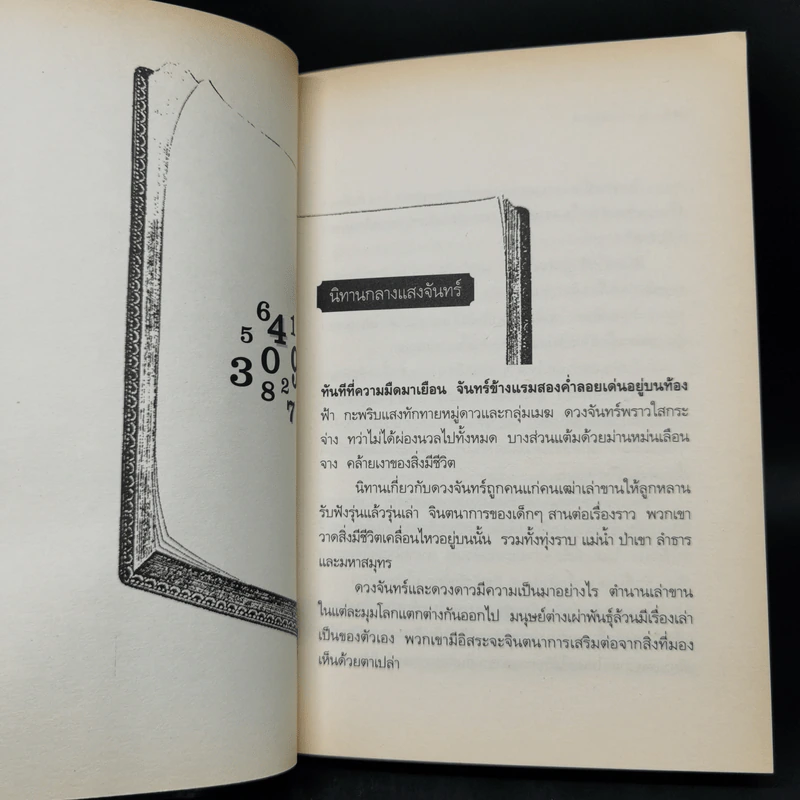 6
5 4 1
3 0 0
8 2
7
นิทานกลางแสงจันทร์
ทันทีที่ความมืดมาเยือน จันทร์ข้างแรมสองค่ำลอยเด่นอยู่บนท้อง
ฟ้า กะพริบแสงทักทายหมู่ดาวและกลุ่มเมฆ ดวงจันทร์พราวใสกระ
จ่าง ทว่าไม่ได้ผ่องนวลไปทั้งหมด บางส่วนแต้มด้วยม่านหม่นเลือน
จาง คล้ายเงาของสิ่งมีชีวิต
นิทานเกี่ยวกับดวงจันทร์ถูกคนแก่คนเฒ่าเล่าขานให้ลูกหลาน
รับฟังรุ่นแล้วรุ่นเล่า จินตนาการของเด็กๆ สานต่อเรื่องราว พวกเขา
วาดสิ่งมีชีวิตเคลื่อนไหวอยู่บนนั้น รวมทั้งทุ่งราบ แม่น้ำ ป่าเขา ลำธาร
และมหาสมุทร
ดวงจันทร์และดวงดาวมีความเป็นมาอย่างไร ตำนานเล่าขาน
ในแต่ละมุมโลกแตกต่างกันออกไป มนุษย์ต่างเผ่าพันธุ์ล้วนมีเรื่องเล่า
เป็นของตัวเอง พวกเขามีอิสระจะจินตนาการเสริมต่อจากสิ่งที่มอง
เห็นด้วยตาเปล่า